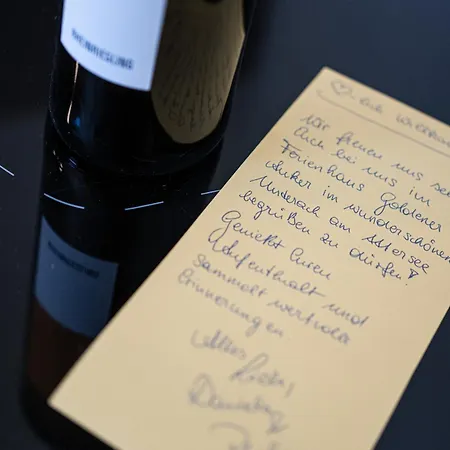 RHEINRIESLING
♡-lich Willkom
Wir freuen uns seh
Euch bei uns im
Ferienhaus Goldener
Anker im wunderschönen
Unterach am Attersee
begrüßen zu dürfen!
Genießt Euren
Aufenthalt und
sammelt wertvolle
Erinnerungen.
Alles Liebe,